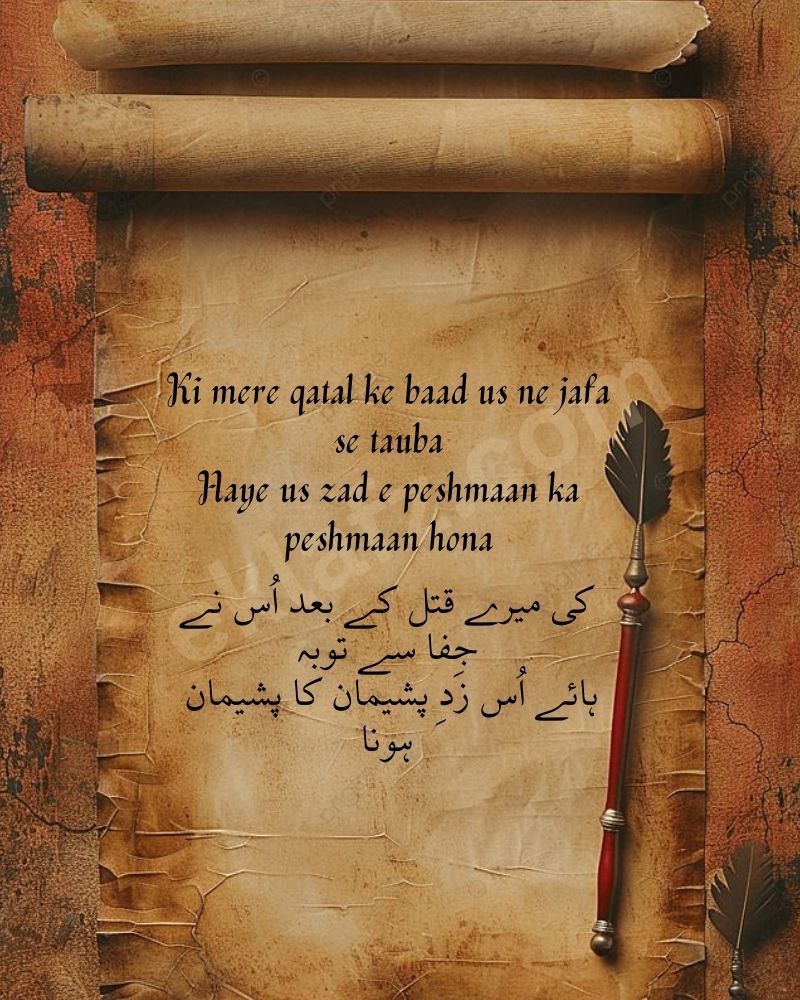 Ki mere qatal ke baad us ne jafa
se tauba
Haye us zad e peshmaan ka
peshmaan hona
کی میرے قتل کے بعد اُس نے
جِفا سے توبہ
ہائے اُس زَدِ پشیمان کا پشیمان
ہونا